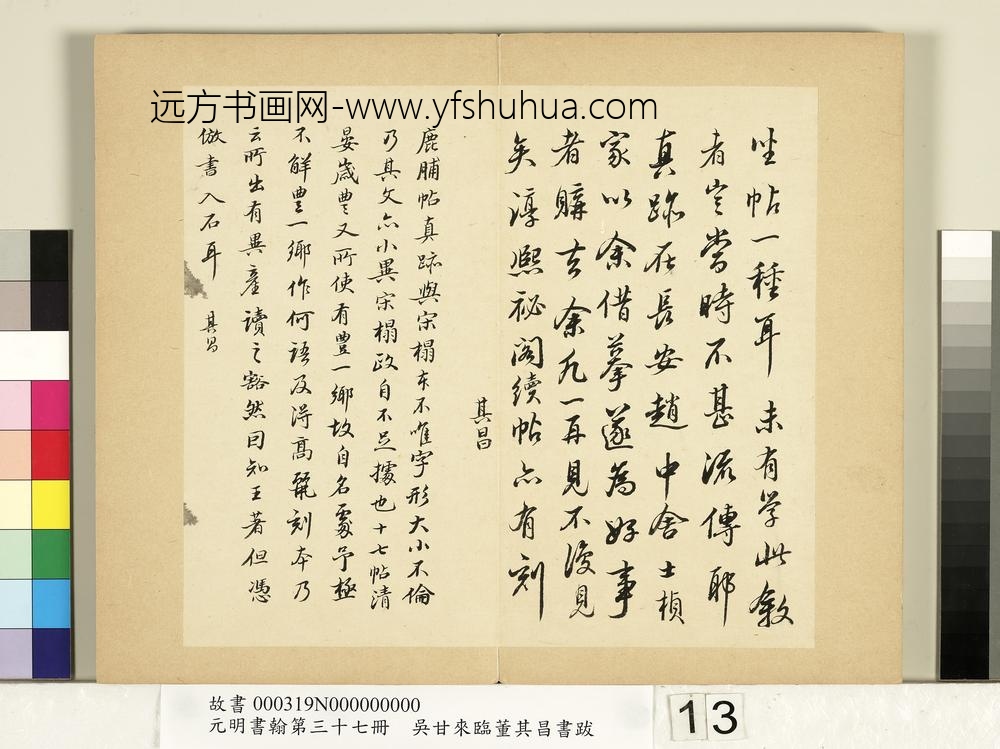 远方书画网-www.yfshuhua.com
坐帖一種耳未有学此叙
者豈當時不甚流傳耶
真跡在長安趙中舍士楨
家以余借摹遂為好事
者購去余凡一再見不復見
矣淳熙祕閣續帖亦有刻
其昌
鹿脯帖真跡與宋榻本不唯字形大小不倫
乃其文亦小異宋榻政自不足據也十七帖清
晏歲豐又所使有豐一鄉故自名處予極
不解豐一鄉作何語及得高麗刻本乃
云所出有異產讀之豁然因知王著但憑
倣書入石耳 其昌
故書 000319N000000000
元明書翰第三十七冊 吳甘來臨董其昌書跋
13